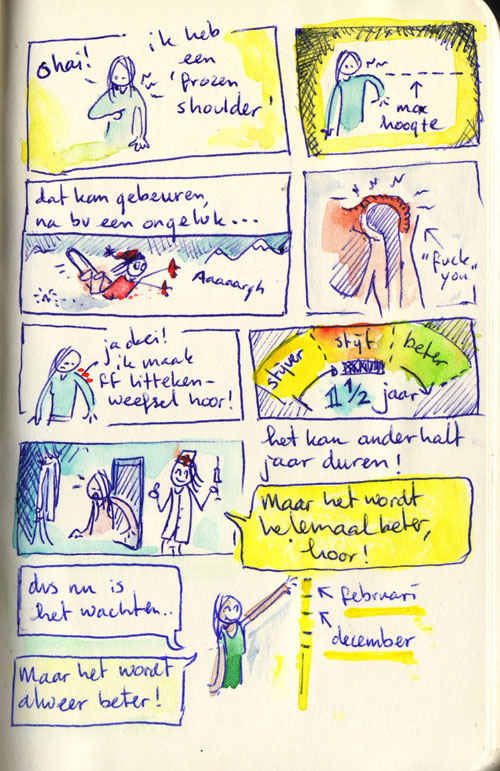 Ohai!
ik heb
een
'frozen
shoulder'
max
hoogte
dat kan gebeuren,
na bv een ongeluk...
Aaaaargh
"fuck
you"
ja doei!
ik maak
ff litteken-
weefsel hoor!
stijver
stijf
beter
1 1/2 jaar
het kan anderhalf
jaar duren!
Maar het wordt
helemaal beter,
hoor!
dus nu is
het wachten..
Maar het wordt
alweer beter!
februari
december